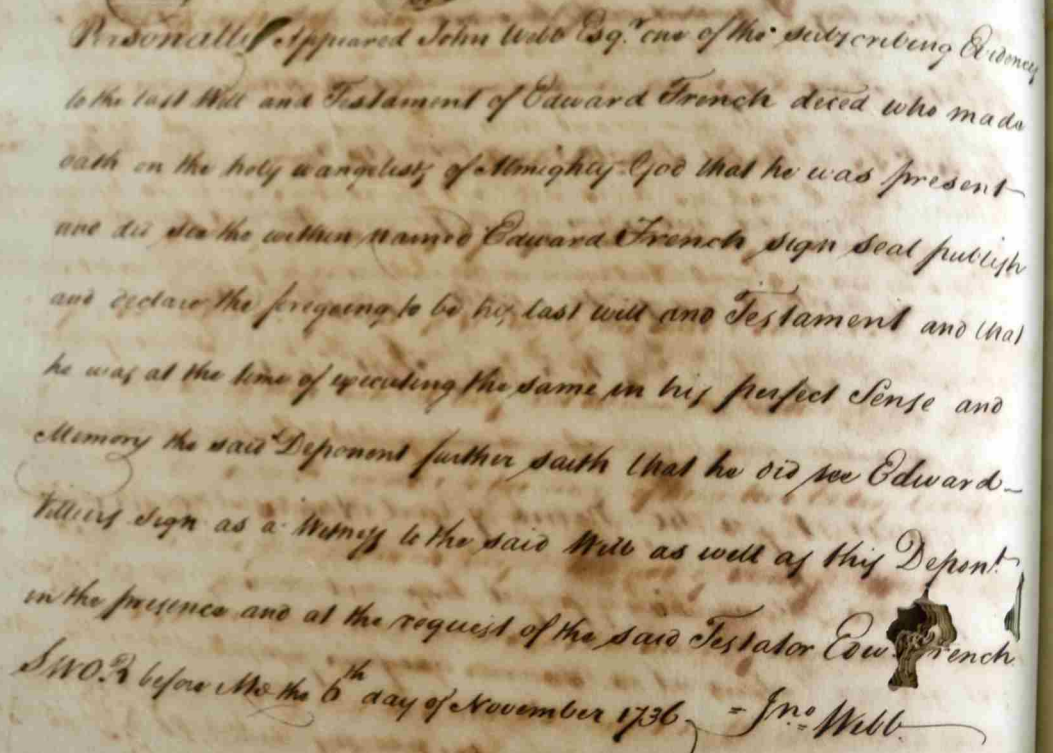 Personally Appeared John Webb Esq.r one of the subscribing Evidences
to the last Will and Testament of Edward French deced who made
oath on the holy evangelists of Almighty God that he was present
and did see the within named Edward French sign seal publish
and declare the foregoing to be his last will and Testament and that
he was at the time of executing the same in his perfect Sense and
Memory the said Deponent further saith that he did see Edward
Sign as a Witness to the said Will as well as this Depon.t
in the presence and at the request of the said Testator Edw French
SWOR before Me the 6th day of November 1736 = Jno Webb